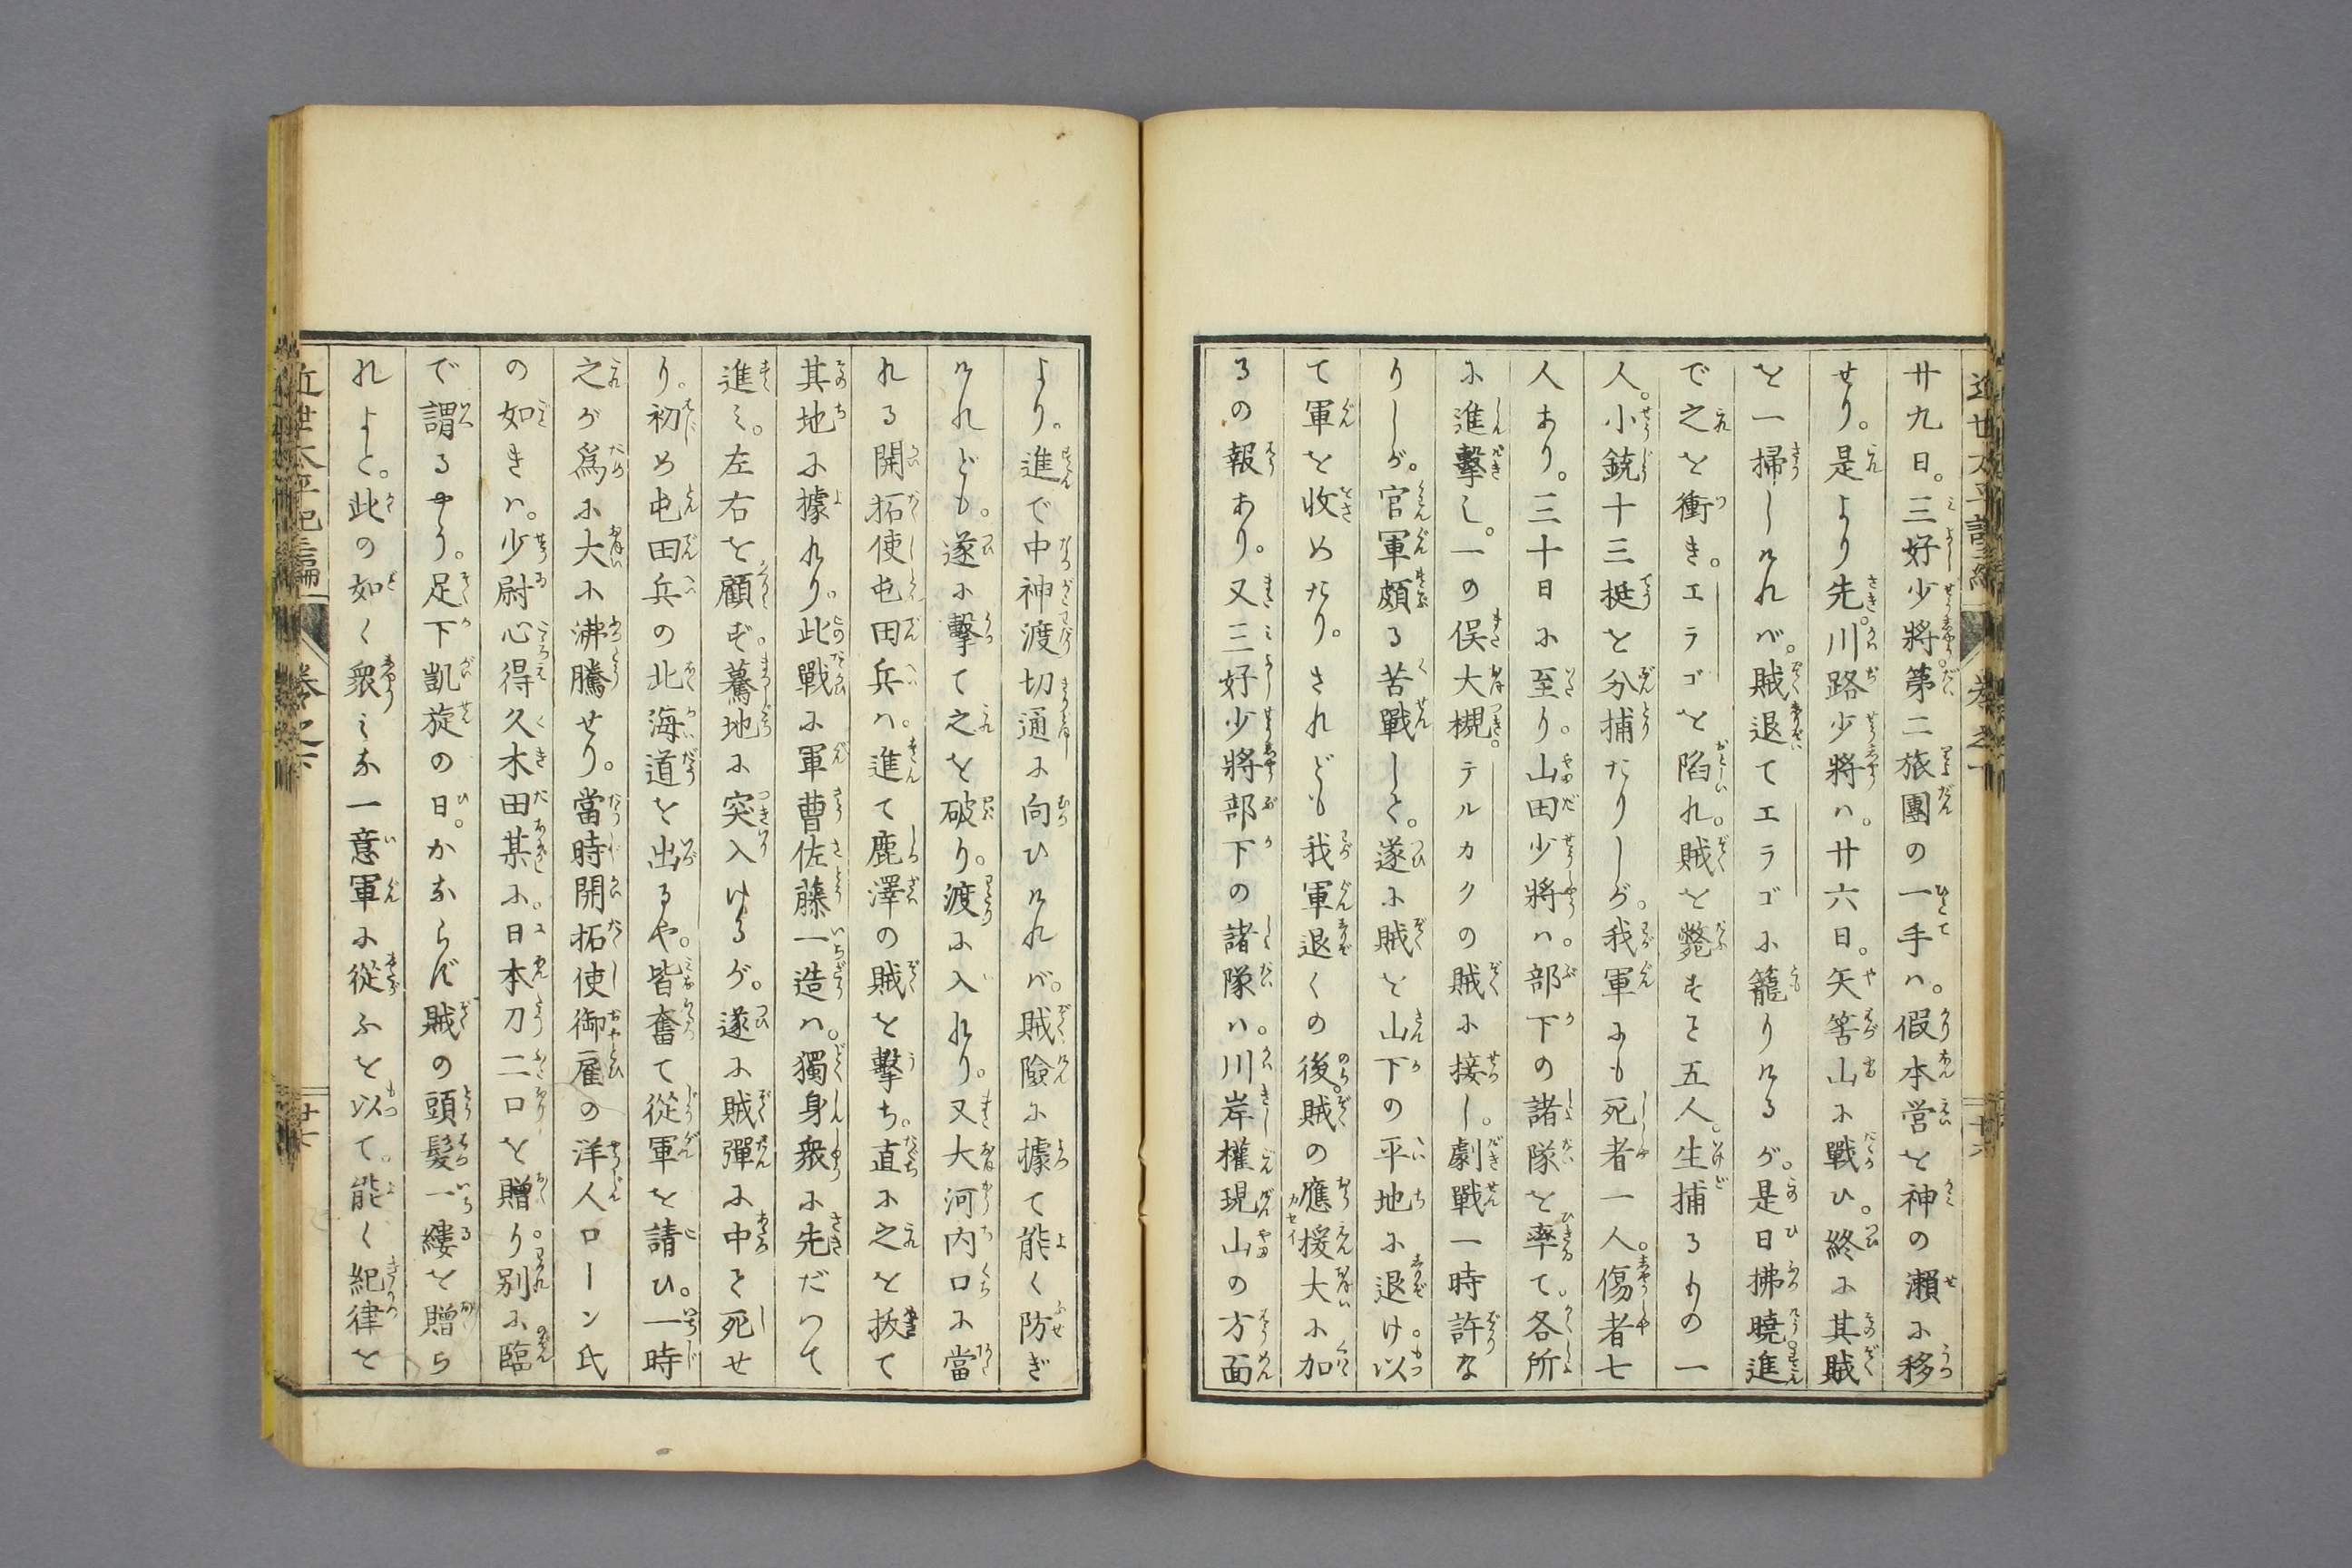 廿九日。三好少將。第二旅團の一手ハ。假本営を神の瀬に移
せり。是より先。川路少將ハ。廿六日。矢筈山に戰ひ。終に其賊
を一掃しければ。賊退てエラゴに籠りけるが。是日拂曉。進
で之を衝き。エラゴを陷れ。賊を斃すこと五人。生捕るもの一
人。小銃十三挺を分捕たりしが。我軍にも死者一人。傷者七
人あり。三十日に至り。山田少將ハ。部下の諸隊を率て。各所
に進擊し。一の俣大槻。テルカクの賊に接し。劇戰一時許な
りしが。官軍頗る苦戰しと。遂に賊を山下の平地に退け。以
て軍を收めたり。されども我軍退くの後。賊の應援大に加
るの報あり。又三好少將部下の諸隊ハ。川岸權現山の方面
より。進で中神渡切通に向ひければ。賊險に據て能く防ぎ
けれども。遂に擊て之を破り。渡に入れり。又大河内口に當
れる開拓使屯田兵ハ。進て鹿澤の賊を擊ち。直に之を拔て
其地に據れり。此戰に軍曹佐藤一造ハ。獨身衆に先だつて
進み。左右を顧ず。驀地に突入けるが。遂に賊彈に中と死せ
り。初め屯田兵の北海道を出るや。皆奮て從軍を請ひ。一時
之が爲に大に沸騰せり。當時開拓使御雇の洋人ローン氏
の如きハ。少尉心得久木田某に。日本刀二口を贈り。別に臨
で謂るやう。足下凱旋の日。かならず賊の頭髮一縷を贈ら
れよと。此の如く衆みな一意軍に從ふを以て。能く紀律を
近世太平記二編 卷之下